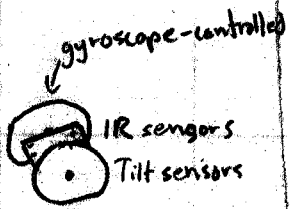 gyroscope-controlled
IR sensors
Tilt sensors